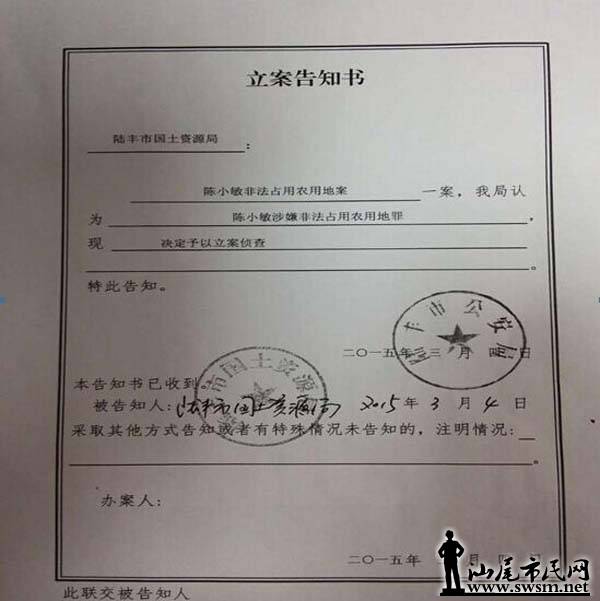 立案告知书
陆丰市国土资源局：
陈小敏非法占用农用地案一案，我局认
为陈小敏涉嫌非法占用农用地罪，
现决定予以立案侦查
。
特此告知。
陆丰市公安局
二〇一五年三月四日
市国土资源
本告知书已收到
被告知人：陆丰市国土资源局 2015年3月4日
采取其他方式告知或者有特殊情况未告知的，注明情况：
。
办案人：
二〇一五年 月四日
此联交被告知人
汕尾市民网
www.swsm.net